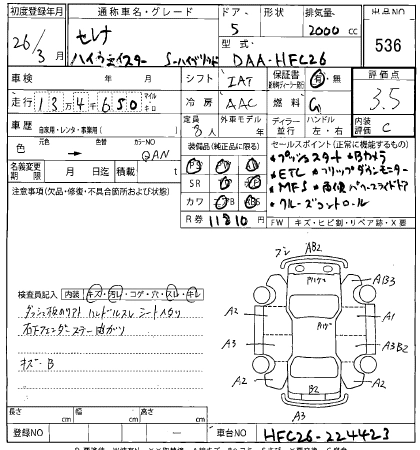 初度登録年月 通称車名・グレード ドア 形状 排気量 出品NO
26/3月 セレナ 5 2000 cc 536
ハイウェイスター S-ハイブリッド 型式 DAA-HFC26
車検 年 月 シフト IAT 保証書 有・無 評価点
走行 134650 マイル キロ 冷房 AAC 燃料 G 3.5
車歴 自家用・レンタ・事業用( ) 定員 8人 外車モデル ディーラー 並行 ハンドル 左・右 内装評価 C
色 元色 色 カラーNO QAN
装備品(純正品に限る) セールスポイント(正常に機能するもの)
名義変更期限 月 日迄 積載 t
PS PW
SR AW
カワ ABS
R券 11810円
*プッシュスタート *Bカメラ
*ETC *フリップダウンモニター
*MFS *両側パワースライドドア
*クルーズコントロール
注意事項(欠品・修復・不具合箇所および状態)
FW キズ・ヒビ割・リペア跡・X
検査員記入 内装 キズ・汚レ・コゲ・穴・スレ・キレ
ハンドルスレ シート
キズ・B
A2 A3 A2 AB2 A3 B2 A1 A3B2 A2
長さ cm 幅 cm 高さ cm
登録NO 車台NO HFC26-224423